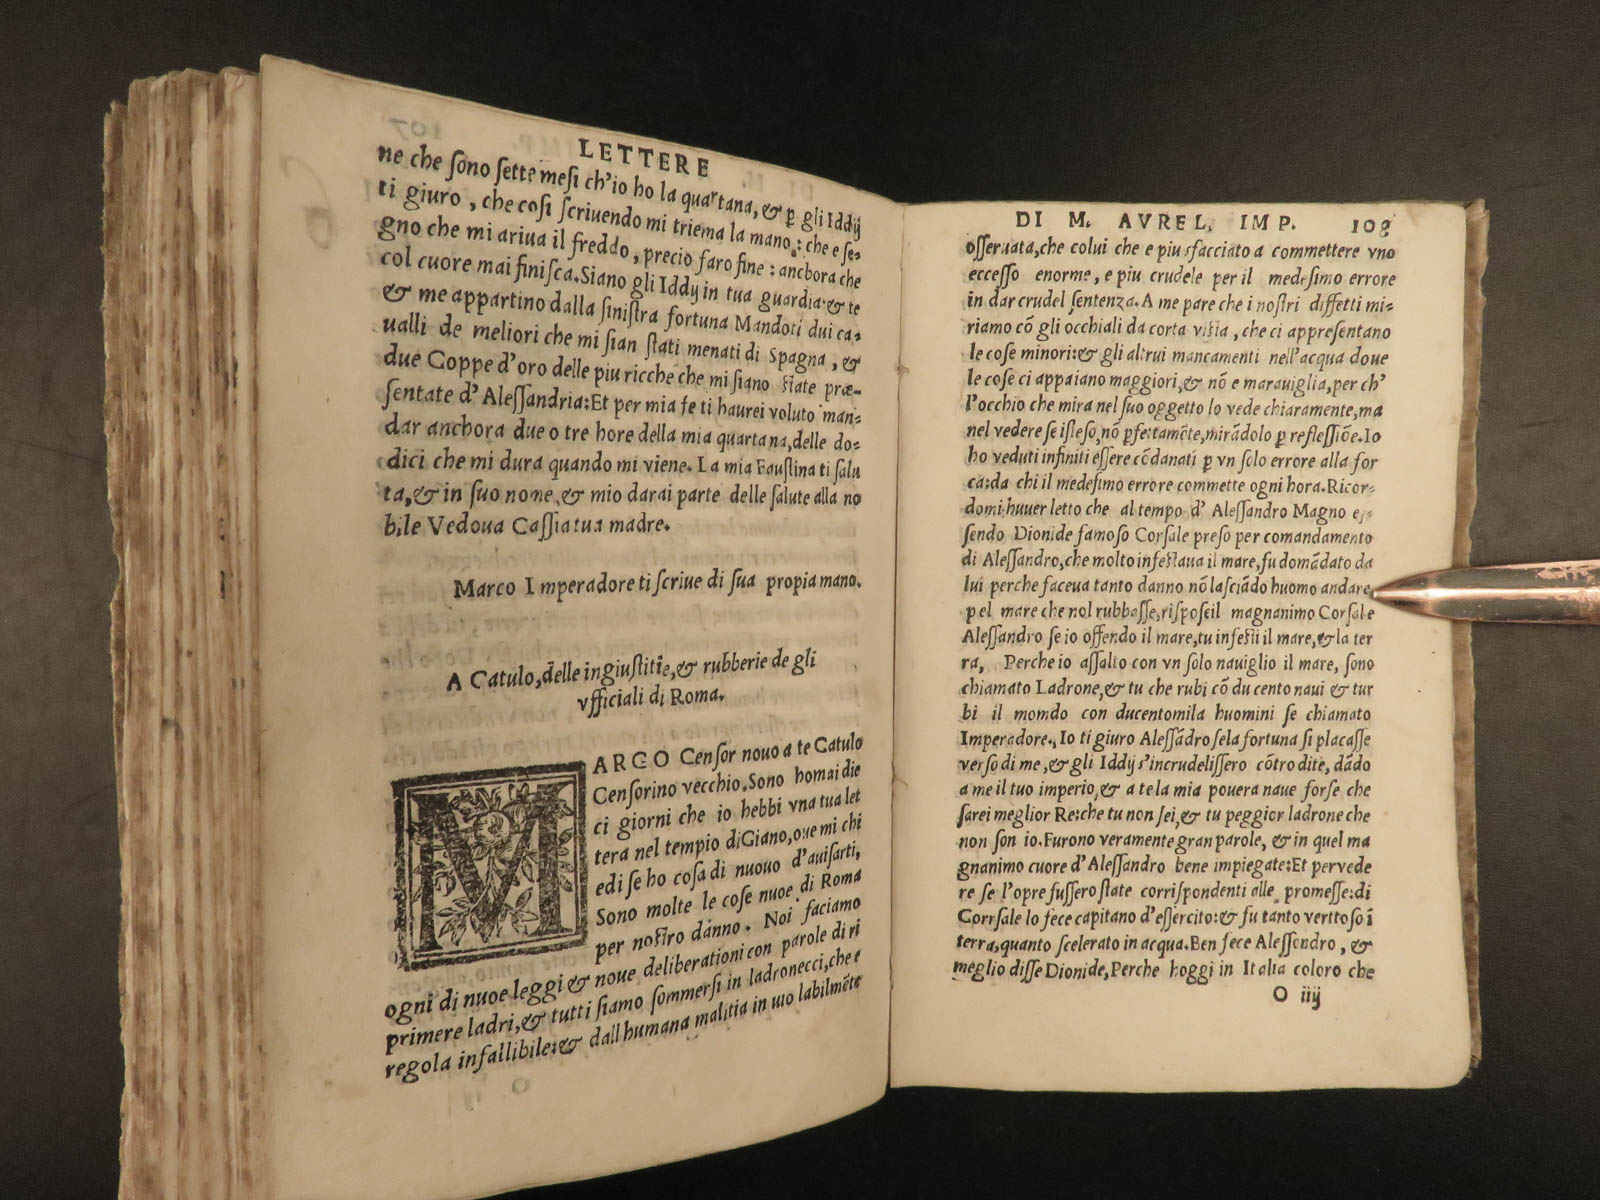 LETTERE
ne che sono sette mesi ch'io ho la quartana, & ꝑ gli Iddij
ti giuro, che cosi scriuendo mi triema la mano: che e se-
gno che mi ariua il freddo, precio faro fine: anchora che
col cuore mai finisca. Siano gli Iddij in tua guardia: & te
& me appartino dalla sinistra fortuna Mandoti dui ca-
ualli de meliori che mi sian stati menati di Spagna, &
due Coppe d'oro delle piu ricche che mi siano state præ-
sentate d'Alessandria: Et per mia fe ti haurei voluto man-
dar anchora due o tre hore della mia quartana, delle do-
dici che mi dura quando mi viene. La mia Faustina ti salu
ta, & in suo nome & mio darai parte delle salute alla no
bile Vedoua Cassia tua madre.
Marco Imperadore ti scriue di sua propia mano.
A Catulo, delle ingiustitie, & rubberie de gli
vfficiali di Roma.
MARCO Censor nouo a te Catulo
Censorino vecchio. Sono homai die
ci giorni che io hebbi vna tua let
tera nel tempio di Giano, oue mi chi
edi se ho cosa di nuouo d'auisarti,
Sono molte le cose nuoe di Roma
per nostro danno. Noi faciamo
ogni di nuoe leggi & noue deliberationi con parole di ri
primere ladri, & tutti siamo sommersi in ladronecci, che e
regola infallibile: & dall humana malitia in uio labilmẽte
DI M. AVREL. IMP. 108
osseruata, che colui che e piu sfacciato a commettere vno
eccesso enorme, e piu crudele per il medesimo errore
in dar crudel sentenza. A me pare che i nostri diffetti mi-
riamo cõ gli occhiali da corta vista, che ci appresentano
le cose minori: & gli altrui mancamenti nell'acqua doue
le cose ci appaiano maggiori, & nõ e marauiglia, per ch'
l'occhio che mira nel suo oggetto lo vede chiaramente, ma
nel vedere se isteso, nõ ꝑfettamẽte, mirãdolo ꝑ reflessiõe. Io
ho veduti infiniti essere cõdanati ꝑ vn solo errore alla for
ca: da chi il medesimo errore commette ogni hora. Ricor-
domi huuer letto che al tempo d'Alessandro Magno es-
sendo Dionide famoso Corsale preso per comandamento
di Alessandro, che molto infestaua il mare, fu domãdato da
lui perche faceua tanto danno nõ lasciãdo huomo andare
pel mare che nol rubbasse, rispose il magnanimo Corsale
Alessandro se io offendo il mare, tu infesti il mare, & la ter
ra, Perche io assalto con vn solo nauiglio il mare, sono
chiamato Ladrone, & tu che rubi cõ ducento naui & tur
bi il momdo con ducentomila huomini se chiamato
Imperadore, Io ti giuro Alessãdro se la fortuna si placasse
verso di me, & gli Iddij s'incrudelissero cõtro di te, dãdo
a me il tuo imperio, & a te la mia pouera naue forse che
sarei meglior Re: che tu non sei, & tu peggior ladrone che
non son io. Furono veramente gran parole, & in quel ma
gnanimo cuore d'Alessandro bene impiegate: Et per vede
re se l'opre fussero state corrispondenti alle promesse: di
Corrsale lo fece capitano d'essercito: & fu tanto verttoso ĩ
terra, quanto scelerato in acqua. Ben fece Alessandro, &
meglio disse Dionide, Perche hoggi in Italia coloro che
O iiij